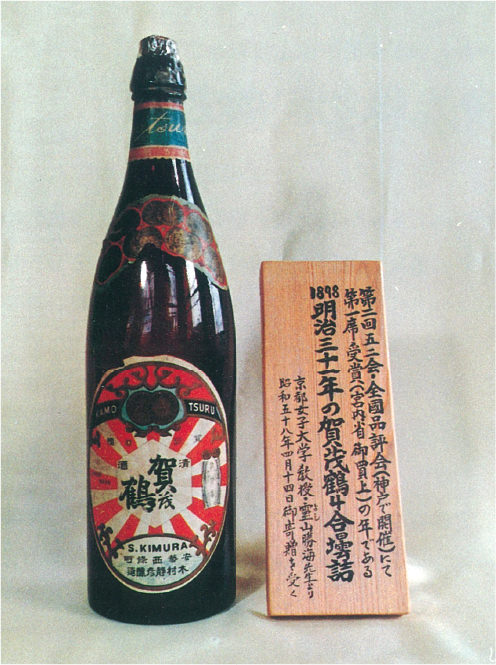 KAMO TSURU
清酒
賀茂鶴
S.KIMURA
安藝西條町
木村靜彦釀造
第二回五二会・全國品評会(神戸で開催)にて
第一席受賞(宮内省御買上)の年である
1898
明治三十一年の賀茂鶴4合壜詰
京都女子大学教授・霊山勝海先生より
昭和五十八年四月十四日御寄贈を受く